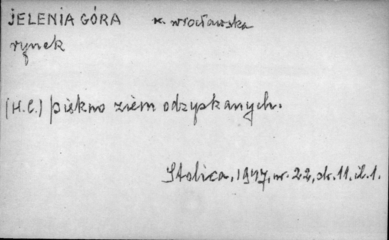 JELENIA GÓRA w. wrocławska
rynek
(H.C.) piękno ziem odzyskanych.
Stolica, 1947, nr. 22, str. 11, il. 1.